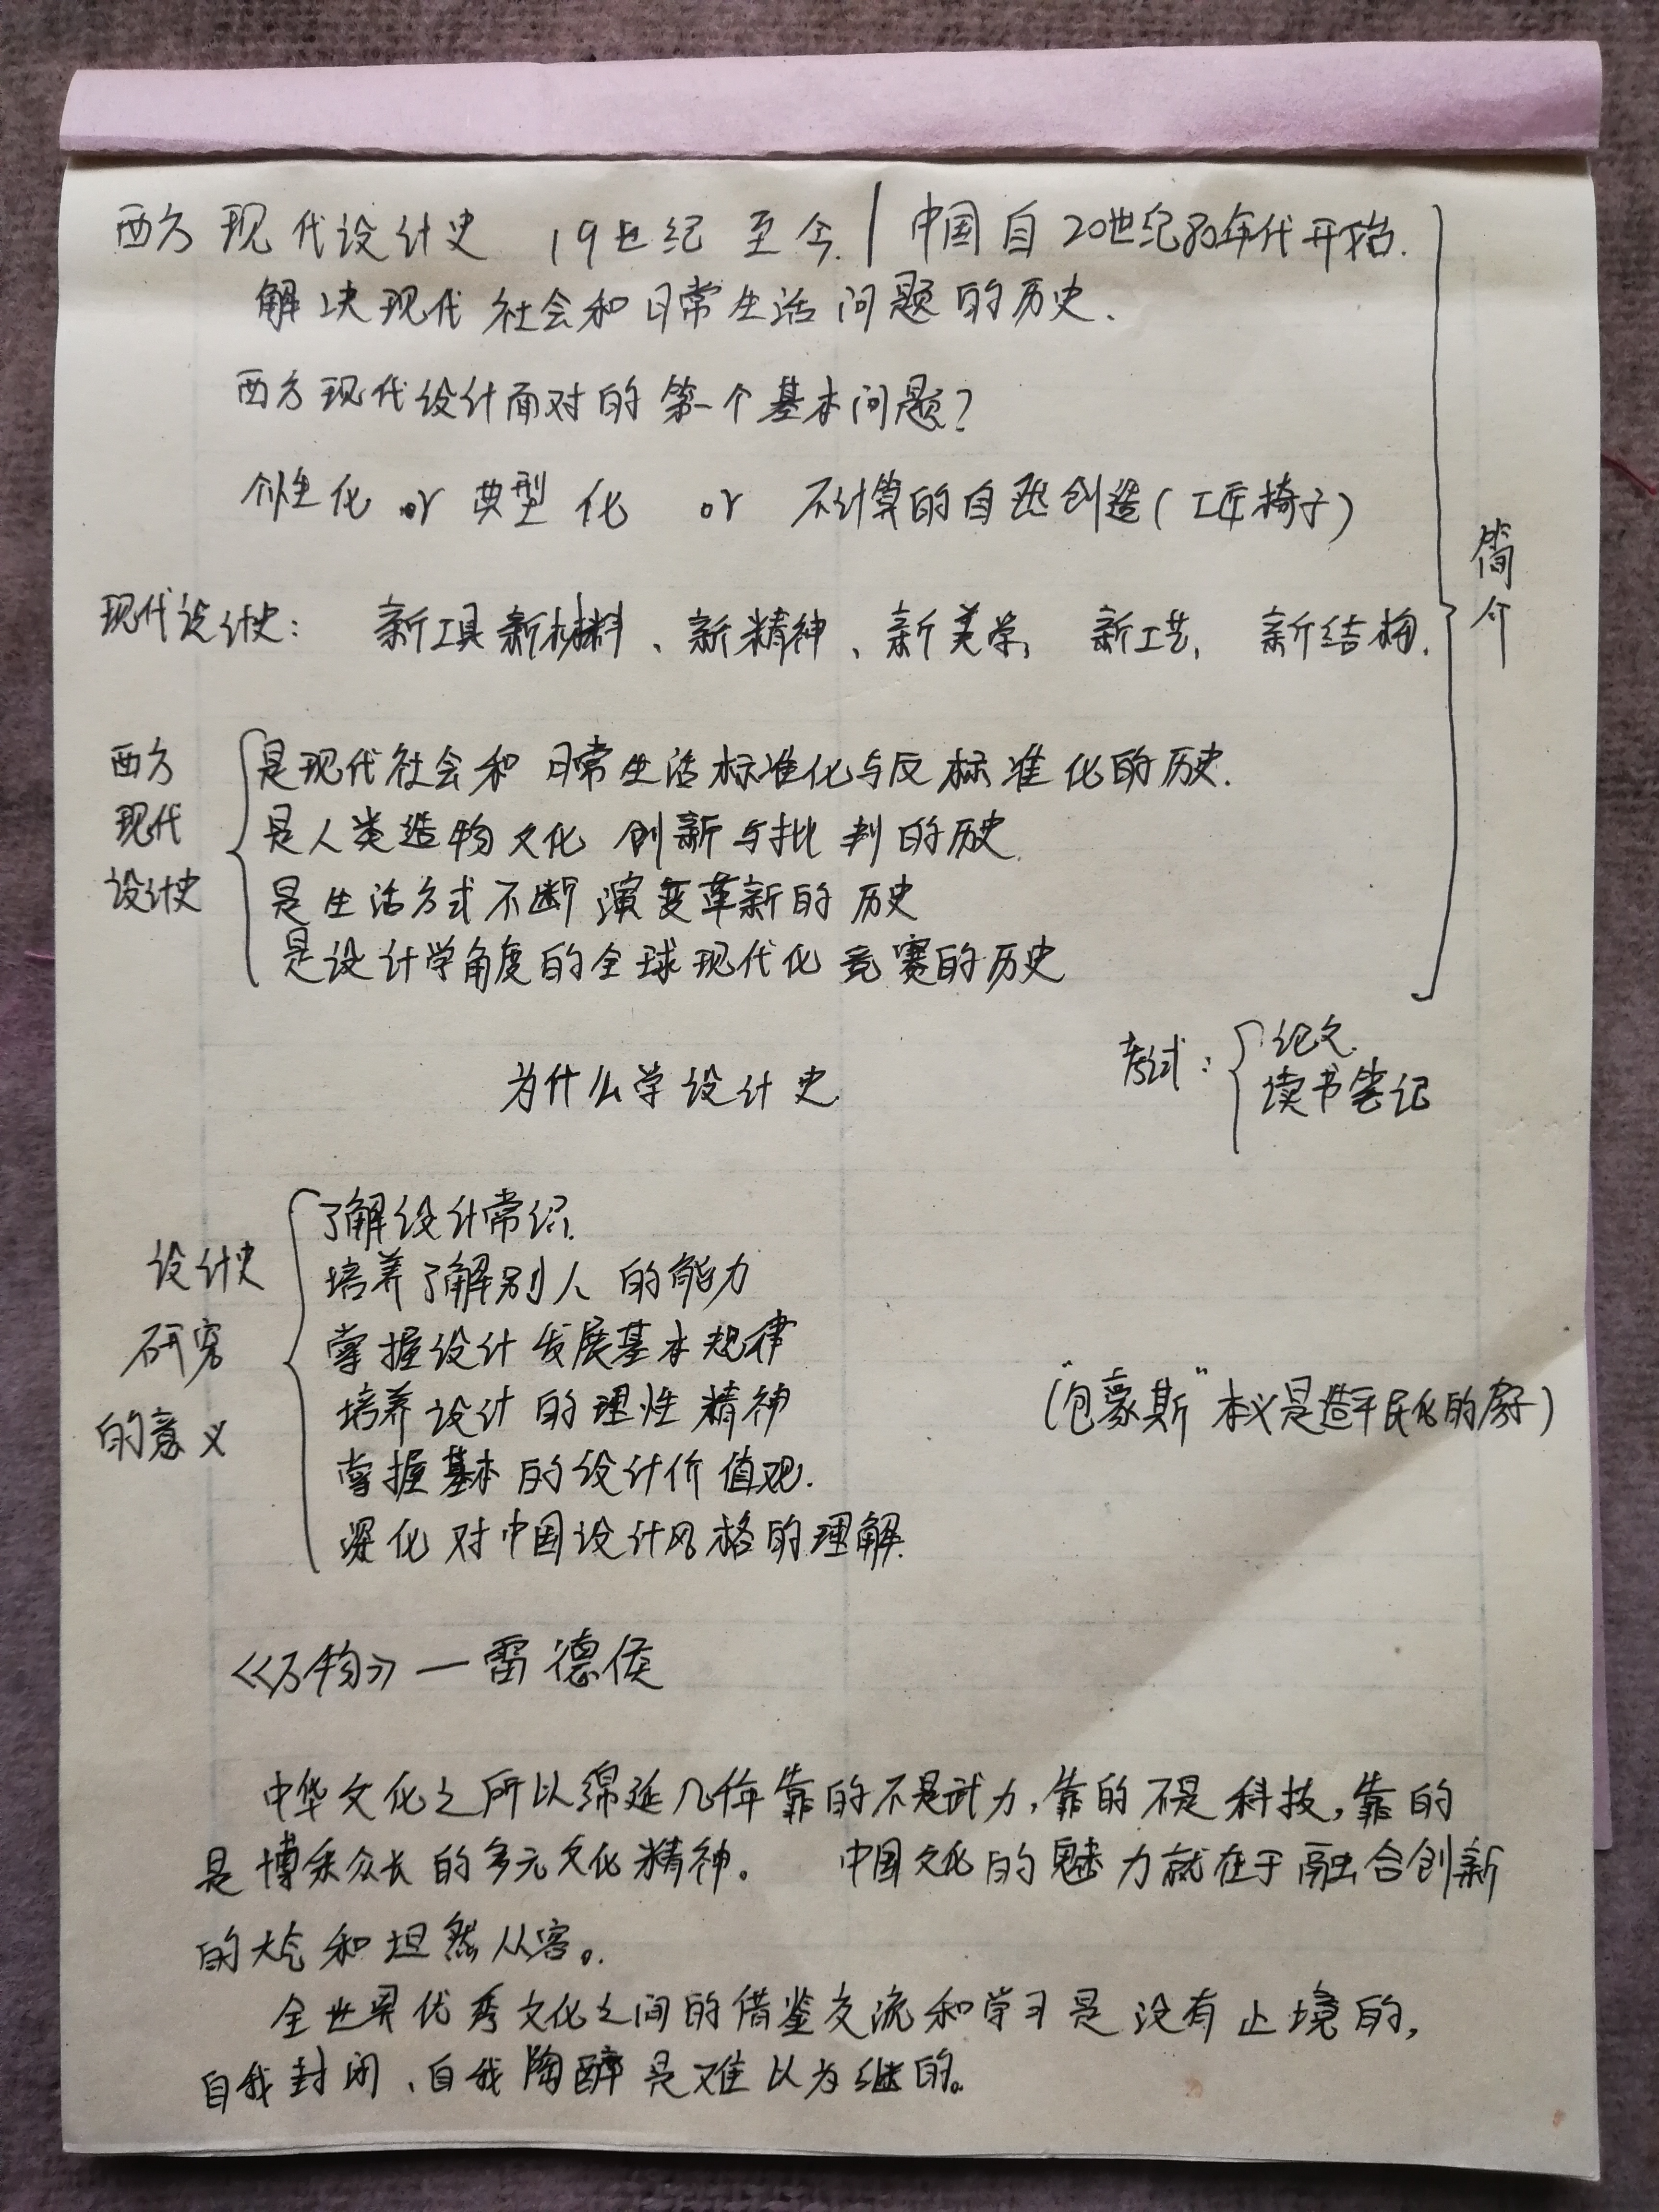 西方现代设计史 19世纪至今 | 中国自20世纪80年代开始.
解决现代社会和日常生活问题的历史.
西方现代设计面对的第一个基本问题?
个性化 or 典型化 or 不计算的自然创造(工匠椅子)
简介
现代设计史: 新工具新材料、新精神、新美学, 新工艺, 新结构.
西方现代设计史
是现代社会和日常生活标准化与反标准化的历史.
是人类造物文化创新与批判的历史.
是生活方式不断演变革新的历史
是设计学角度的全球现代化竞赛的历史
考试: 论文.
读书笔记
为什么学设计史.
设计史研究的意义
了解设计常识.
培养了解别人的能力
掌握设计发展基本规律
培养设计的理性精神
掌握基本的设计价值观.
深化对中国设计风格的理解.
("包豪斯"本义是造平民化的房子)
《万物》—雷德侯
中华文化之所以绵延几千年靠的不是武力,靠的不是科技,靠的
是博采众长的多元文化精神。 中国文化的魅力就在于融合创新
的大气和坦然从容。
全世界优秀文化之间的借鉴交流和学习是没有止境的,
自我封闭、自我陶醉是难以为继的。